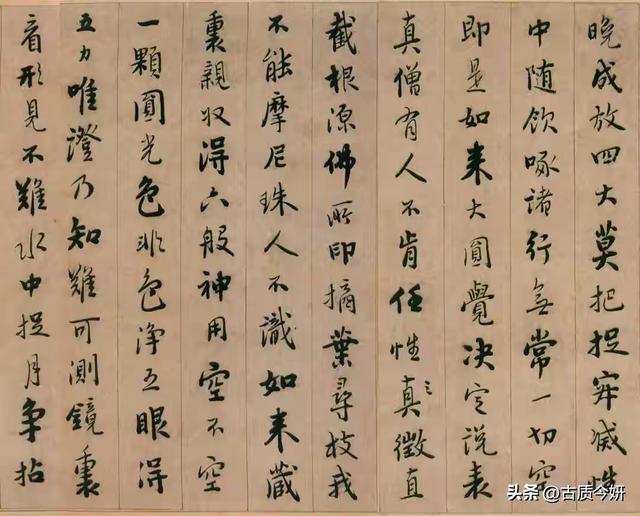 晚成放四大莫把捉寂滅性
中随飲啄諸行無常一切空
即是如来大圓覺决定說表
真僧有人不肯任性真徵直
截根源佛所印摘葉尋枝我
不能摩尼珠人不識如来藏
裏親収得六般神用空不空
一顆圓光色非色净五眼得
五力唯證乃知難可測鏡裏
看形見不難水中捉月争拈
头条 @古质今妍